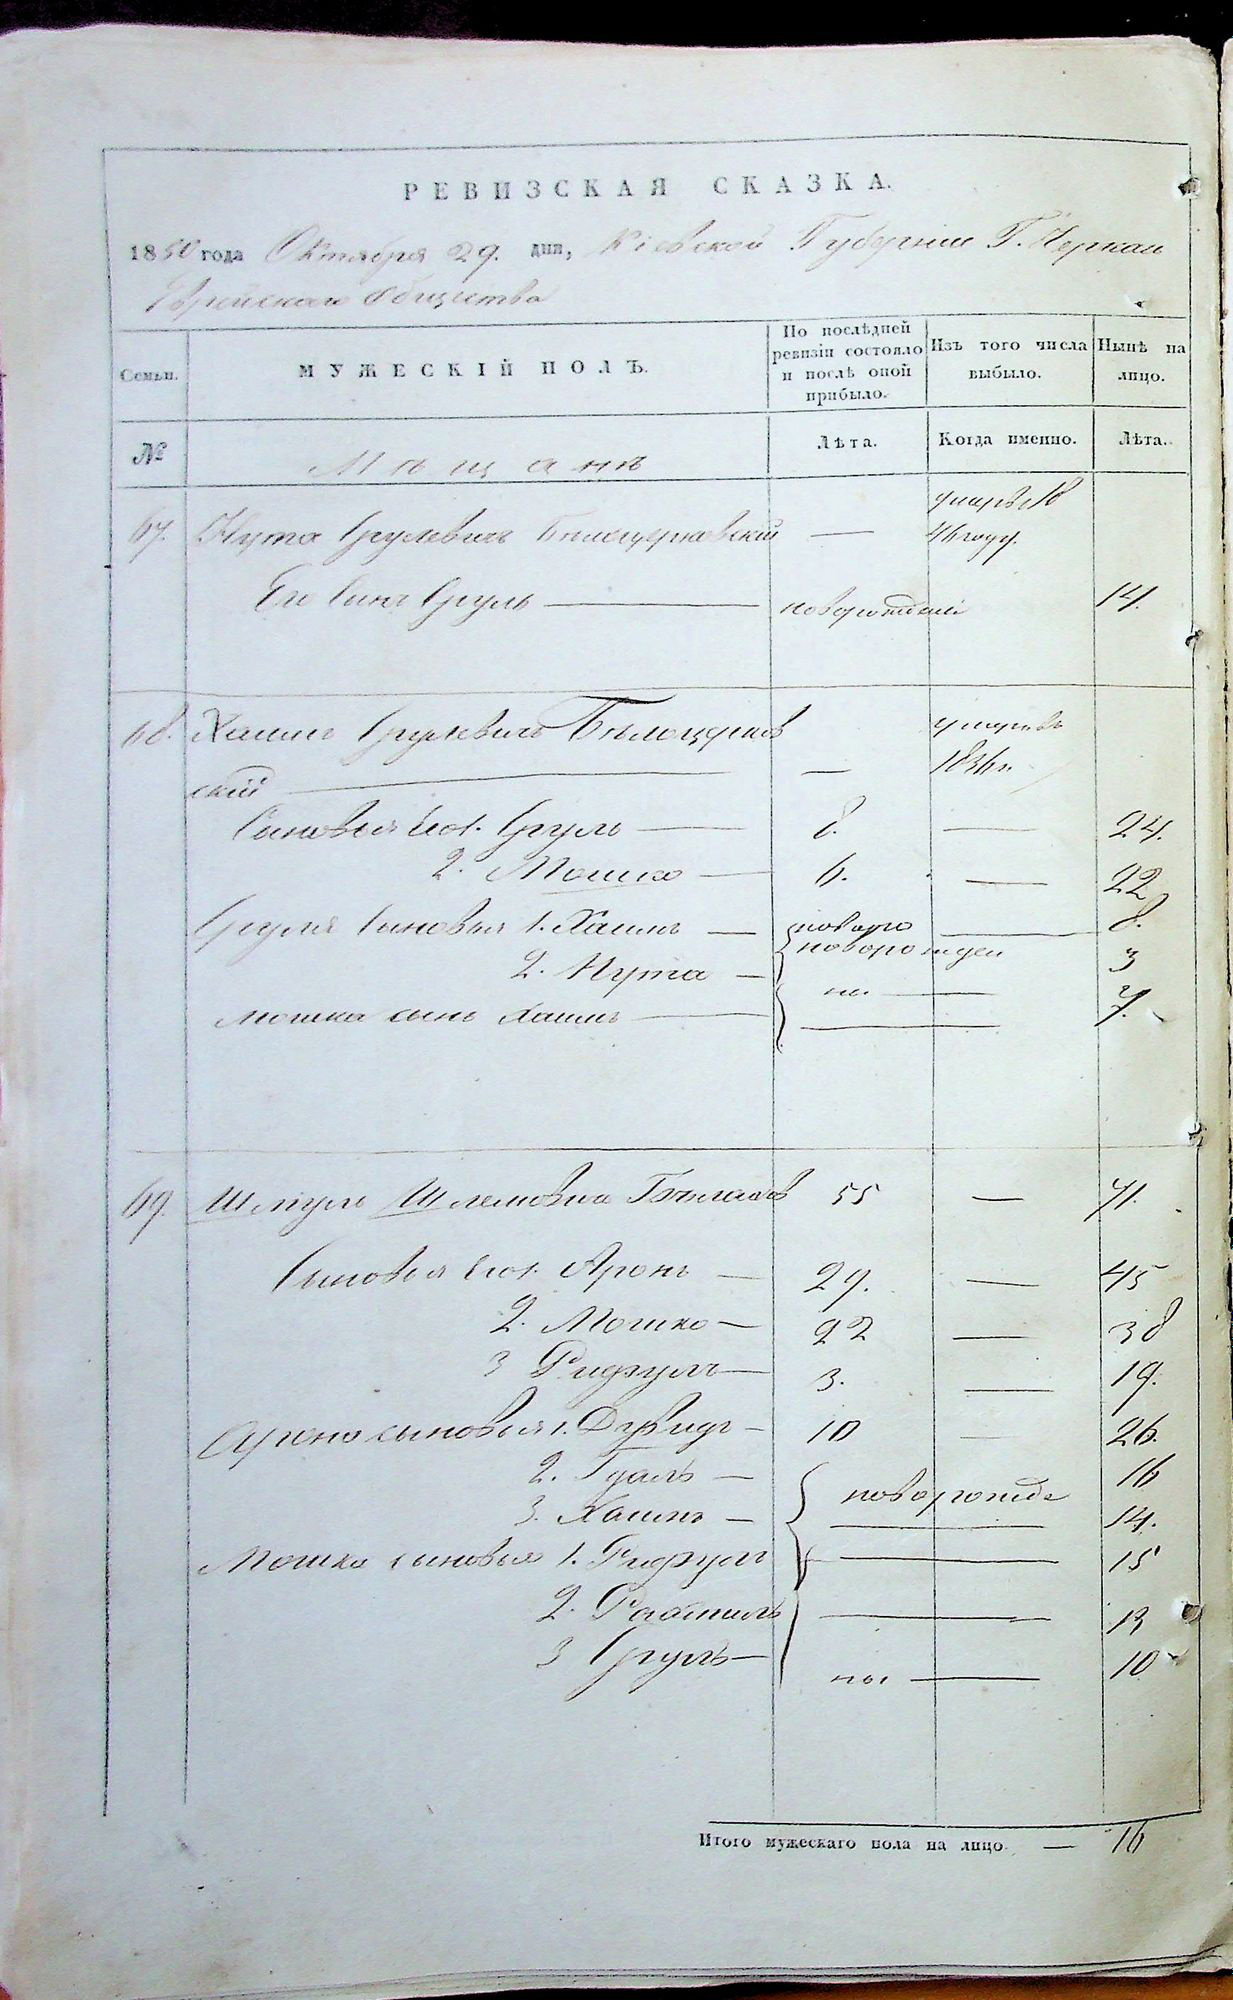 РЕВИЗСКАЯ СКАЗКА.
1850 года Октября 29. дня, Кіевской Губерніи Г. Черкас
Еврейскаго Общества
Семьи.
МУЖЕСКІЙ ПОЛЪ.
По послѣдней ревизіи состояло и послѣ оной прибыло.
Изъ того числа выбыло.
Нынѣ на лицо.
№
Мѣщанѣ
Лѣта.
Когда именно.
Лѣта.
67. Нута Срулевичъ Билоцерковскій — умаръ 18
46 году
Его Сынъ Сруль — новорожденій 14.
68. Хаимъ Срулевичъ Бѣлоцерков умаръ
скій — — 1836 г.
Сыновья Его 1. Сруль — 8. — 24.
2. Мошко — 6. — 22
Сруля Сыновья 1. Хаимъ — новоро — 8.
2. Нута — новорожден 3
ны —
Мошка сынъ Хаимъ — — 7.
69. Шмуль Шлемовичъ 55 — 71.
Сыновья Его 1. Аронъ — 29. — 45
2. Мошко — 22 — 38
3 — 3. — 19.
Арона сыновья 1. Дувидъ — 10 — 26.
2. — 16
новорожде
3. Хаимъ — — 14.
Мошка сыновья 1. — 15
2. — 13
3 Сруль — ны — 10
Итого мужескаго пола на лицо — 16